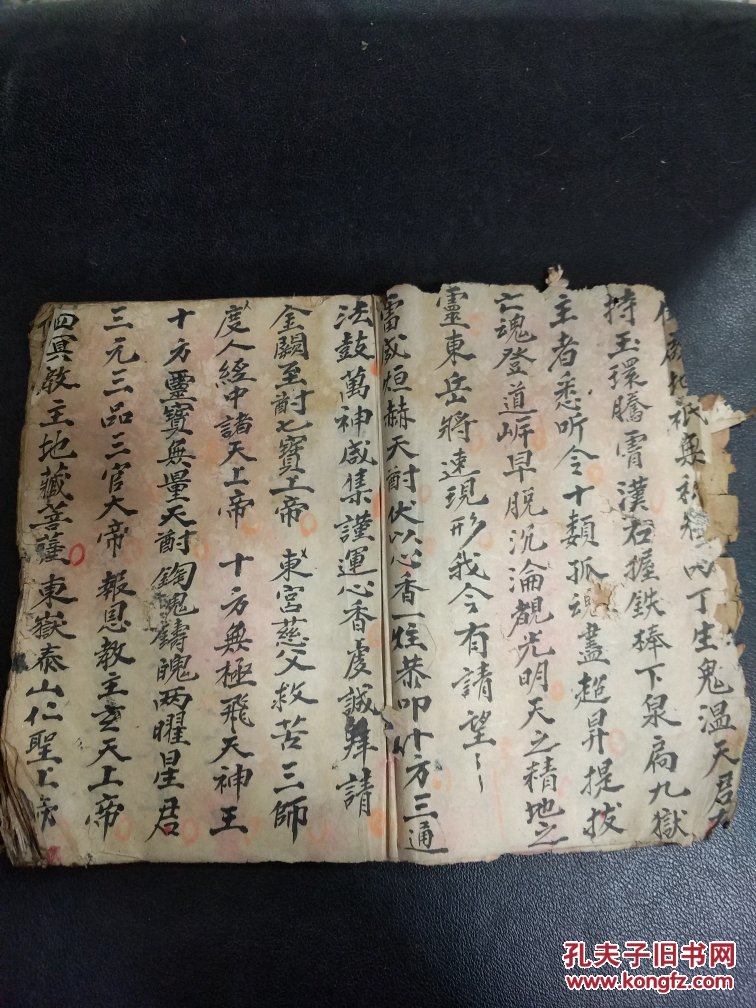 地祇奧丙丁生鬼溫天君
持玉環騰霄漢右握鉄棒下泉扃九獄
主者悉听令十類孤魂盡超昇提拔
亡魂登道岸早脫沉淪覩光明天之精地之
靈東岳將速現形我今有請望〻
雷威烜赫天尊伏以心香一炷恭叩十方三通
法鼓萬神咸集謹運心香虔誠拜請
金闕至尊七寶上帝 東宮慈父救苦三師
度人經中諸天上帝 十方無極飛天神王
十方靈寶無量天尊 陶魂鑄魄两曜星君
三元三品三官大帝 報恩教主玄天上帝
冥教主地藏菩薩 東嶽泰山仁聖上帝
孔夫子旧书网
www.kongfz.com